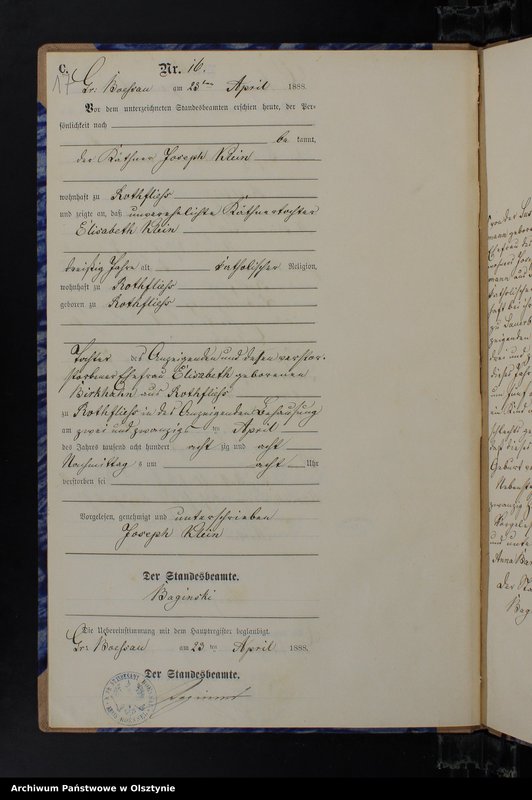 C.
17
Nr. 16.
Gr: Boessau am 23ten April 1888.
Vor dem unterzeichneten Standesbeamten erschien heute, der Per-
sönlichkeit nach
be kannt,
der Käthner Joseph Klein
wohnhaft zu Rothfliess
und zeigte an, daß unverehelichte Käthnertochter
Elisabeth Klein
dreißig Jahre alt katholischer Religion,
wohnhaft zu Rothfliess
geboren zu Rothfliess
Tochter des Anzeigenden und dessen verstor-
storbener Ehefrau Elisabeth geborenen
Birkhahn aus Rothfliess
zu Rothfliess in des Anzeigenden Behausung
am zwei und zwanzigs ten April
des Jahres tausend acht hundert acht zig und acht
Nachmittag s um acht Uhr
verstorben sei
Vorgelesen, genehmigt und unterschrieben
Joseph Klein
Der Standesbeamte.
Baginski
Die Uebereinstimmung mit dem Hauptregister beglaubigt.
Gr: Boessau am 23 ten April 1888.
Der Standesbeamte.
Archiwum Państwowe w Olsztynie